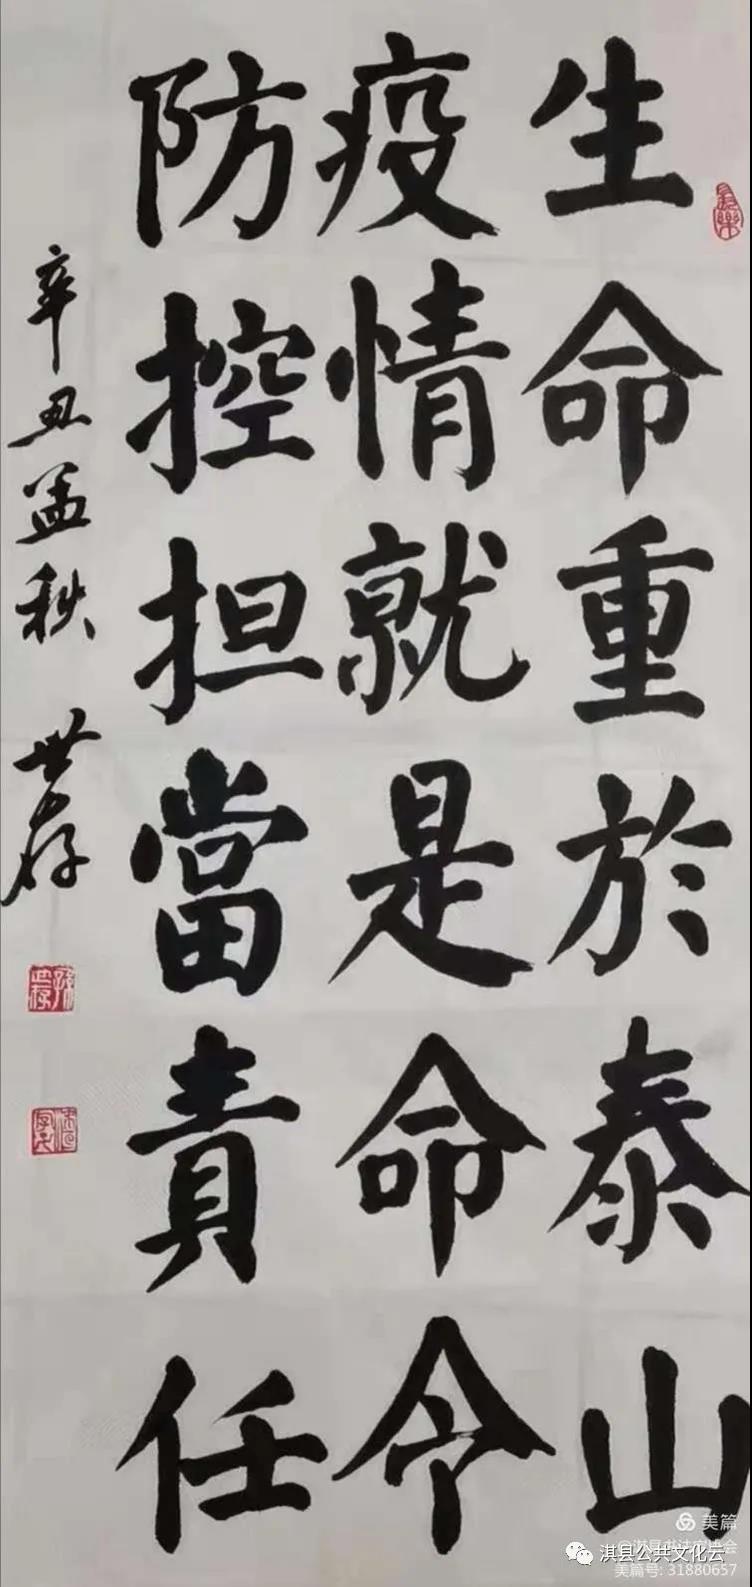 生命重於泰山
疫情就是命令
防控担當責任
辛丑孟秋 世存
美篇
淇县公共文化云
美篇号: 31880657